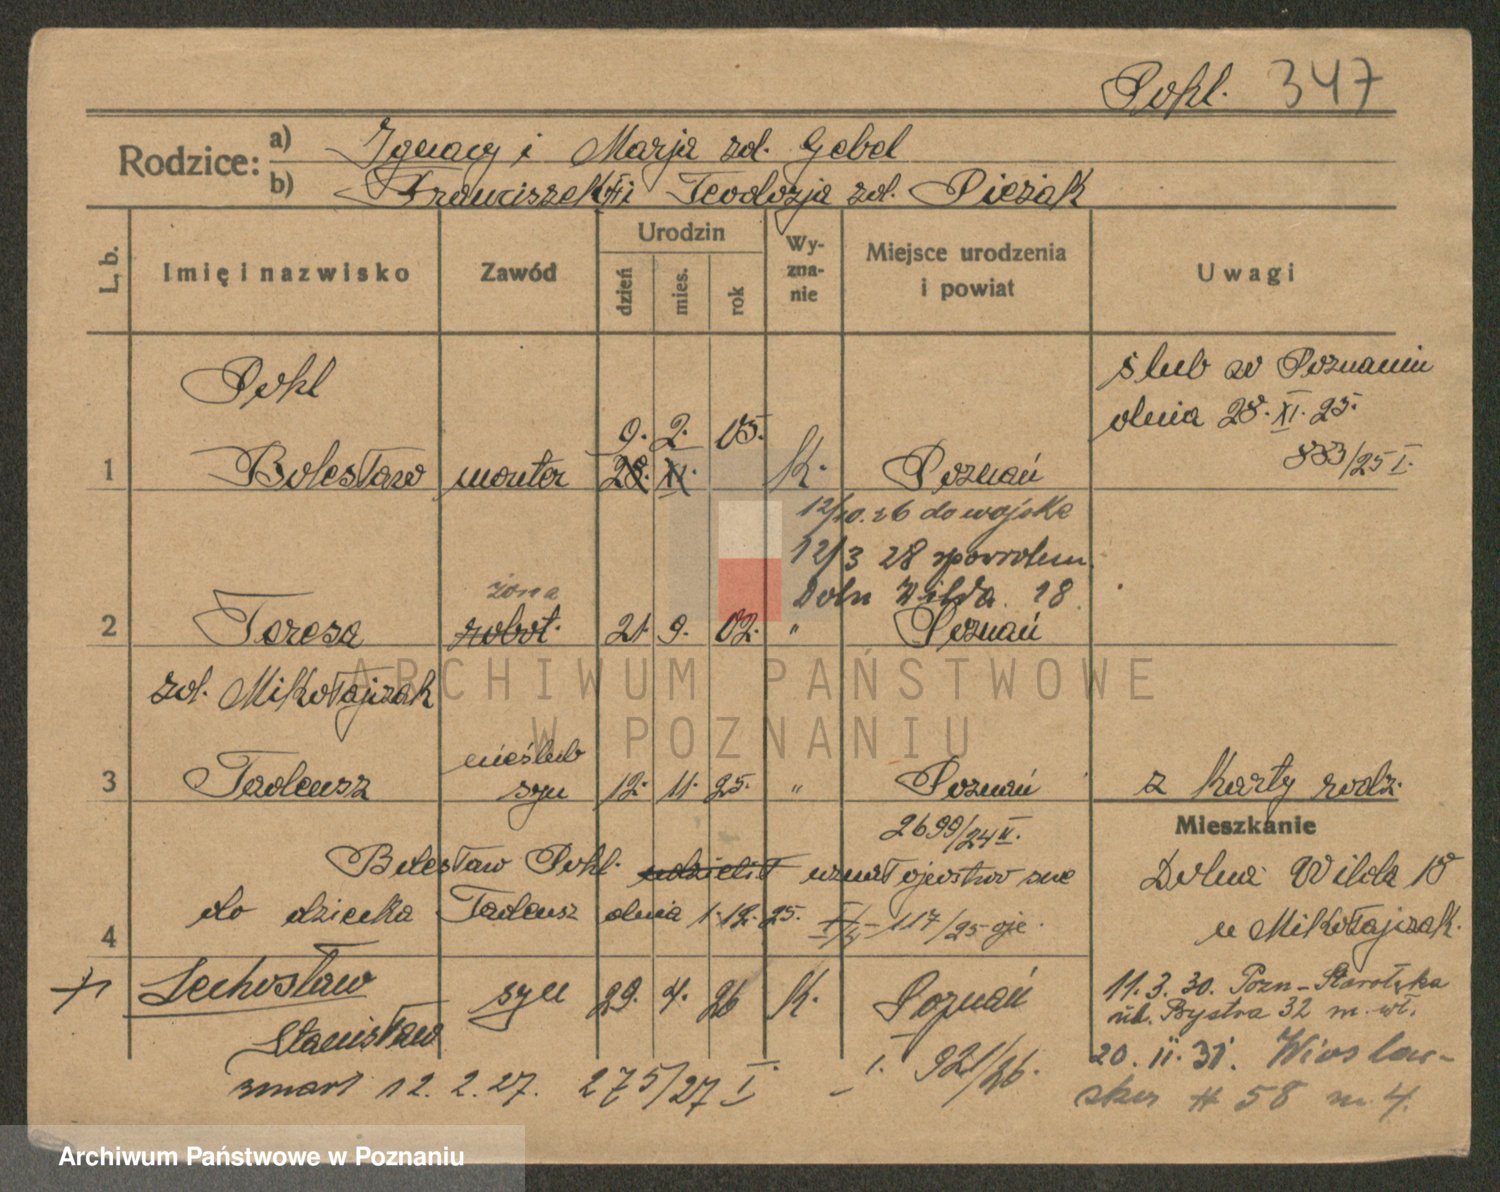 Pokl. 347
Rodzice: a) Ignacy i Marja zd. Gebel
b) Franciszek i Teodozja zd. Pieżak
L. b. Imię i nazwisko Zawód Urodzin dzień mies. rok Wy-zna-nie Miejsce urodzenia i powiat Uwagi
Pokl
ślub w Poznaniu
dnia 28. XI. 25.
9. 2. 05.
883/25 I.
1 Bolesław monter 28. XI. K. Poznań
12/10. 26 do wojska
12/3 28 spowrotem
żona Doln Wilda 18
2 Teresa robot. 21. 9. 02. " Poznań
zd. Mikołajczak
nieślub
3 Tadeusz syn 12. 11. 25. " Poznań z karty rodz.
2699/24 II. Mieszkanie
Bolesław Pokl. udzielił uznał ojcostwo swe Dolna Wilda 18
do dziecka Tadeusz dnia 1. 12. 25. 117/25 u Mikołajczak.
4
Lechosław syn 29. 4. 26 K. Poznań 11. 3. 30. Pozn-Starołęka
ul. Bystra 32 m. wł.
Stanisław
I. 921/26. 20. II. 31. Wioslar-
zmarł 12. 2. 27. 275/27 I. ska # 58 m. 4.
ARCHIWUM PAŃSTWOWE
W POZNANIU
Archiwum Państwowe w Poznaniu